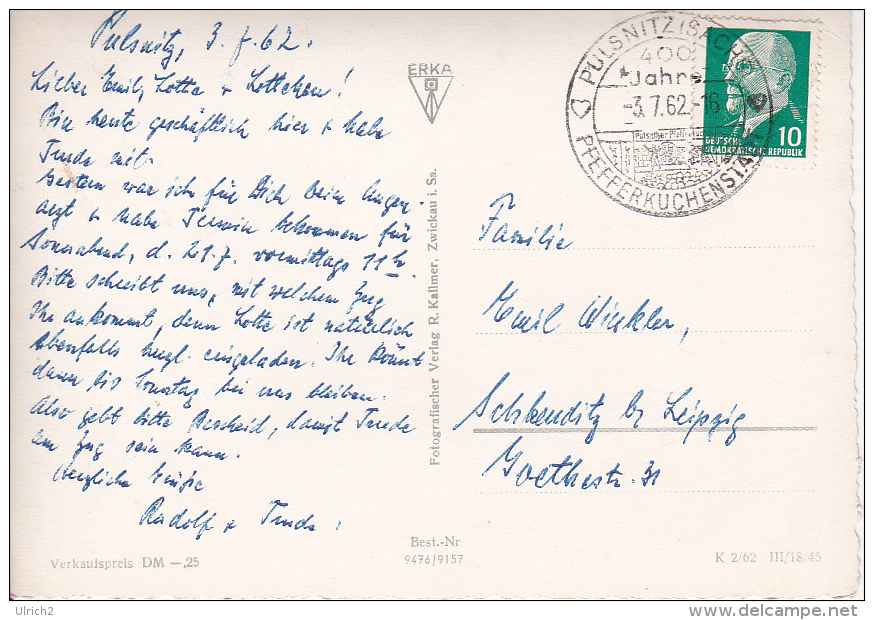 Pulsnitz, 3.7.62.
Lieber Emil, Lotte + Lottchen!
Bin heute geschäftlich hier + habe
Trude mit.
Gestern war ich für Dich beim Augen-
arzt + habe Termin bekommen für
Sonnabend, d. 21.7. vormittags 11 h.
Bitte schreibt uns, mit welchem Zug
Ihr ankommt, denn Lotte ist natürlich
ebenfalls herzl. eingeladen. Ihr könnt
dann bis Sonntag bei uns bleiben.
Also gebt bitte Bescheid, damit Trude
am Zug sein kann.
Herzliche Grüße
Rudolf + Trude.
Verkaufspreis DM —,25
ERKA
Fotografischer Verlag R. Kallmer, Zwickau i. Sa.
Best.-Nr
9476/9157
PULSNITZ (SACHS)
400
Jahre
-3.7.62.-16
PFEFFERKUCHENSTADT
10
DEUTSCHE
DEMOKRATISCHE REPUBLIK
Familie
Emil Winkler,
Schkeuditz b/ Leipzig
Goethestr. 31
K 2/62 III/18/45
Ulrich2
delcampe.net